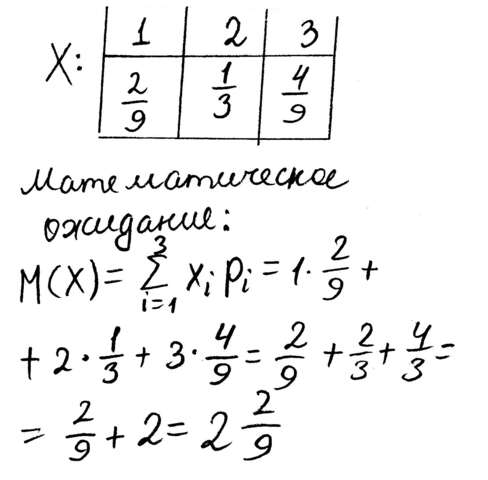 X: 1 2 3
2/9 1/3 4/9
Математическое
ожидание:
M(X)= ∑_{i=1}^{3} x_i p_i = 1·2/9 +
+ 2·1/3 + 3·4/9 = 2/9 + 2/3 + 4/3 =
= 2/9 + 2 = 2 2/9